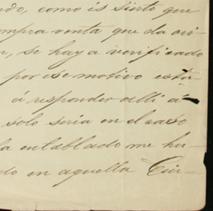 ndo, como is sinto que
mpra venta que da ori
n, se hay a verificado
por ese motivo esta
á responder alli á
solo seria en el caso
á entablado me hu
do en aquella Ciu-